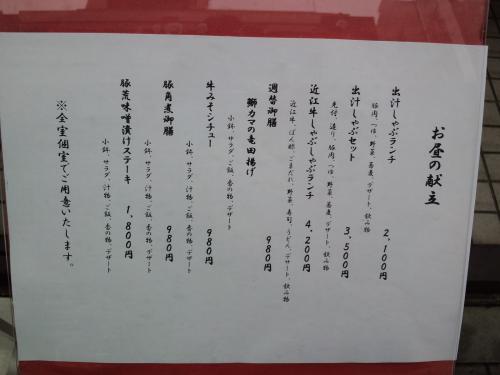 お昼の献立
出汁しゃぶランチ 2,100円
豚肉、つゆ、野菜、蕎麦、デザート、飲み物
出汁しゃぶセット 3,500円
先付、造り、豚肉、つゆ、野菜、蕎麦、デザート、飲み物
近江牛しゃぶしゃぶランチ 4,200円
近江牛、ぽん酢、ごまだれ、野菜、寿司、うどん、デザート、飲み物
週替御膳 980円
鰤カマの竜田揚げ
小鉢、サラダ、ご飯、香の物、デザート
牛みそシチュー 980円
小鉢、サラダ、汁物、ご飯、香の物、デザート
豚角煮御膳 980円
小鉢、サラダ、汁物、ご飯、香の物、デザート
豚荒味噌漬けステーキ 1,800円
小鉢、サラダ、汁物、ご飯、香の物、デザート
※全室個室でご用意いたします。